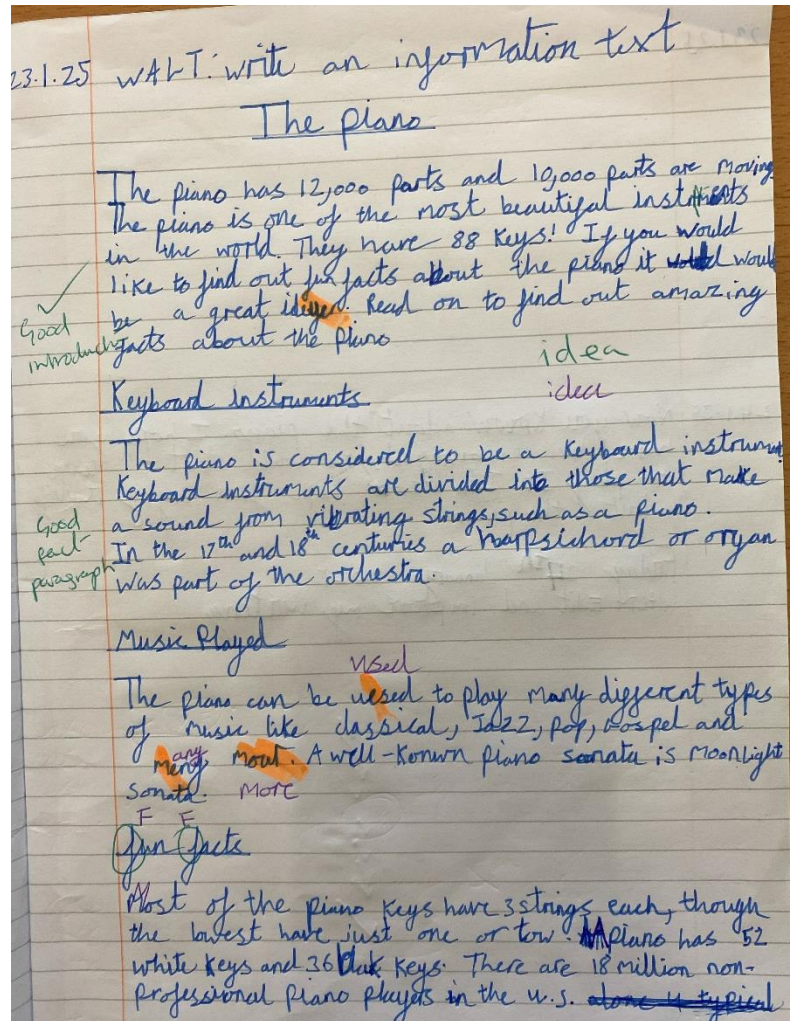 23.1.25 WALT: write an information text
The piano
The piano has 12,000 parts and 10,000 parts are moving
The piano is one of the most beautiful instments
in the world. They have 88 keys! If you would
like to find out fun facts about the piano it would
be a great Read on to find out amazing
Good introduction
facts about the piano
idea
idea
Keyboard instruments
The piano is considered to be a Keyboard instrument
Keyboard instruments are divided into those that make
a sound from vibrating strings, such as a piano.
Good fact paragraph
In the 17th and 18th centuries a harpsichord or organ
was part of the orchestra.
Music Played
used
The piano can be uesed to play many different types
of music like classical, Jazz, pop, Gospel and
any
meny mout. A well-konwn piano sonata is Moonlight
Sonata. More
F F
fun facts
Most of the piano keys have 3 strings each, though
the lowest have just one or tow. A piano has 52
white keys and 36 blak keys. There are 18 million non-
professional piano players in the u.s. alone 4 typical